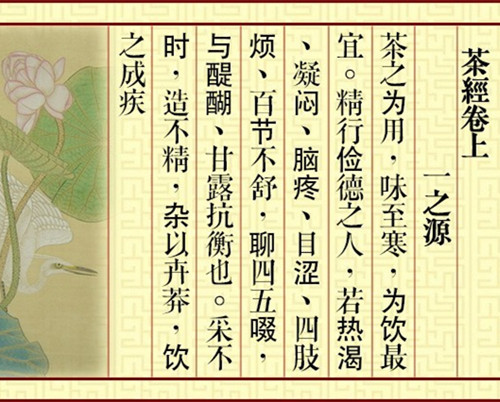 茶經卷上
一之源
茶之为用，味至寒，为饮最
宜。精行俭德之人，若热渴
、凝闷、脑疼、目涩、四肢
烦、百节不舒，聊四五啜，
与醍醐、甘露抗衡也。采不
时，造不精，杂以卉莽，饮
之成疾